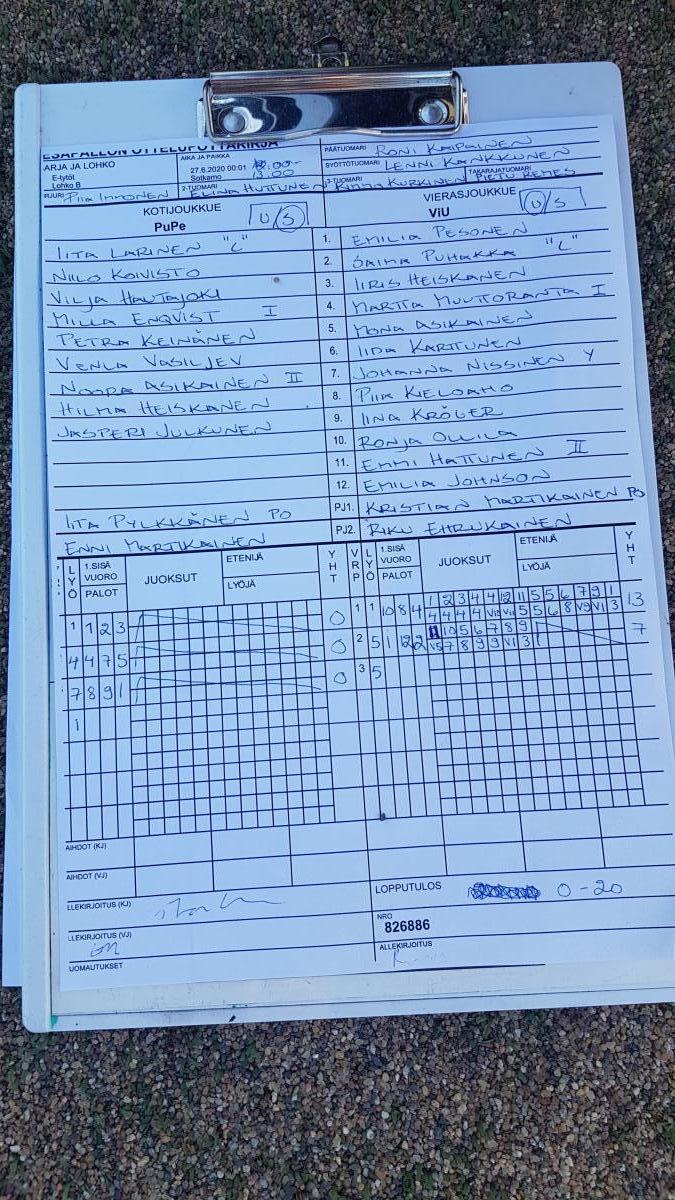 ESÄPALLON OTTELUPÖYTÄKIRJA
ARJA JA LOHKO
E-tytöt
Lohko B
AIKA JA PAIKKA
27.6.2020 00:01
Sotkamo 13.00
PÄÄTUOMARI RONI KAIPAINEN
SYÖTTÖTUOMARI LENNI KANKKUNEN
RJURI Piia Immonen
2-TUOMARI ELINA HUTTUNEN
3-TUOMARI KURKINEN
TAKARAJATUOMARI PIETU REMES
KOTIJOUKKUE U/S
PuPe
VIERASJOUKKUE U/S
ViU
IITA LARINEN "C"
1. EMILIA PESONEN
NIILO KOIVISTO
2. SAIMA PUHAKKA "C"
VILJA HAUTAJOKI
3. IIRIS HEISKANEN
MILLA ENQVIST I
4. MARTTA MUUTTORANTA I
PETRA KEINÄNEN
5. MONA ASIKAINEN
VENLA VASILJEV
6. IIDA KARTTUNEN
NOORA ASIKAINEN II
7. JOHANNA NISSINEN Y
HILMA HEISKANEN
8. PIIA KIELOAHO
JASPERI JULKUNEN
9. IINA KRÖGER
10. RONJA OLLILA
11. EMMI HATTUNEN II
12. EMILIA JOHNSON
IITA PYLKKÄNEN PO
PJ1. KRISTIAN MARTIKAINEN PO
ENNI MARTIKAINEN
PJ2. RIKU EHRUKAINEN
LYÖ 1.SISÄ VUORO PALOT JUOKSUT ETENIJÄ LYÖJÄ YHT VRP LYÖ 1.SISÄ VUORO PALOT JUOKSUT ETENIJÄ LYÖJÄ YHT
1 1 2 3 0 1 1 10 8 4 1 2 3 4 4 12 11 5 5 6 7 9 1 13
4 4 4 4 V12 V11 5 5 6 8 V9 V1 3
4 4 7 5 0 2 5 1 12 2 10 5 6 7 8 9 1 7
V5 7 8 9 9 V1 3
7 8 9 1 0 3 5
1
AIHDOT (KJ)
AIHDOT (VJ)
LLEKIRJOITUS (KJ)
LOPPUTULOS 0-20
LLEKIRJOITUS (VJ)
NRO
826886
UOMAUTUKSET
ALLEKIRJOITUS